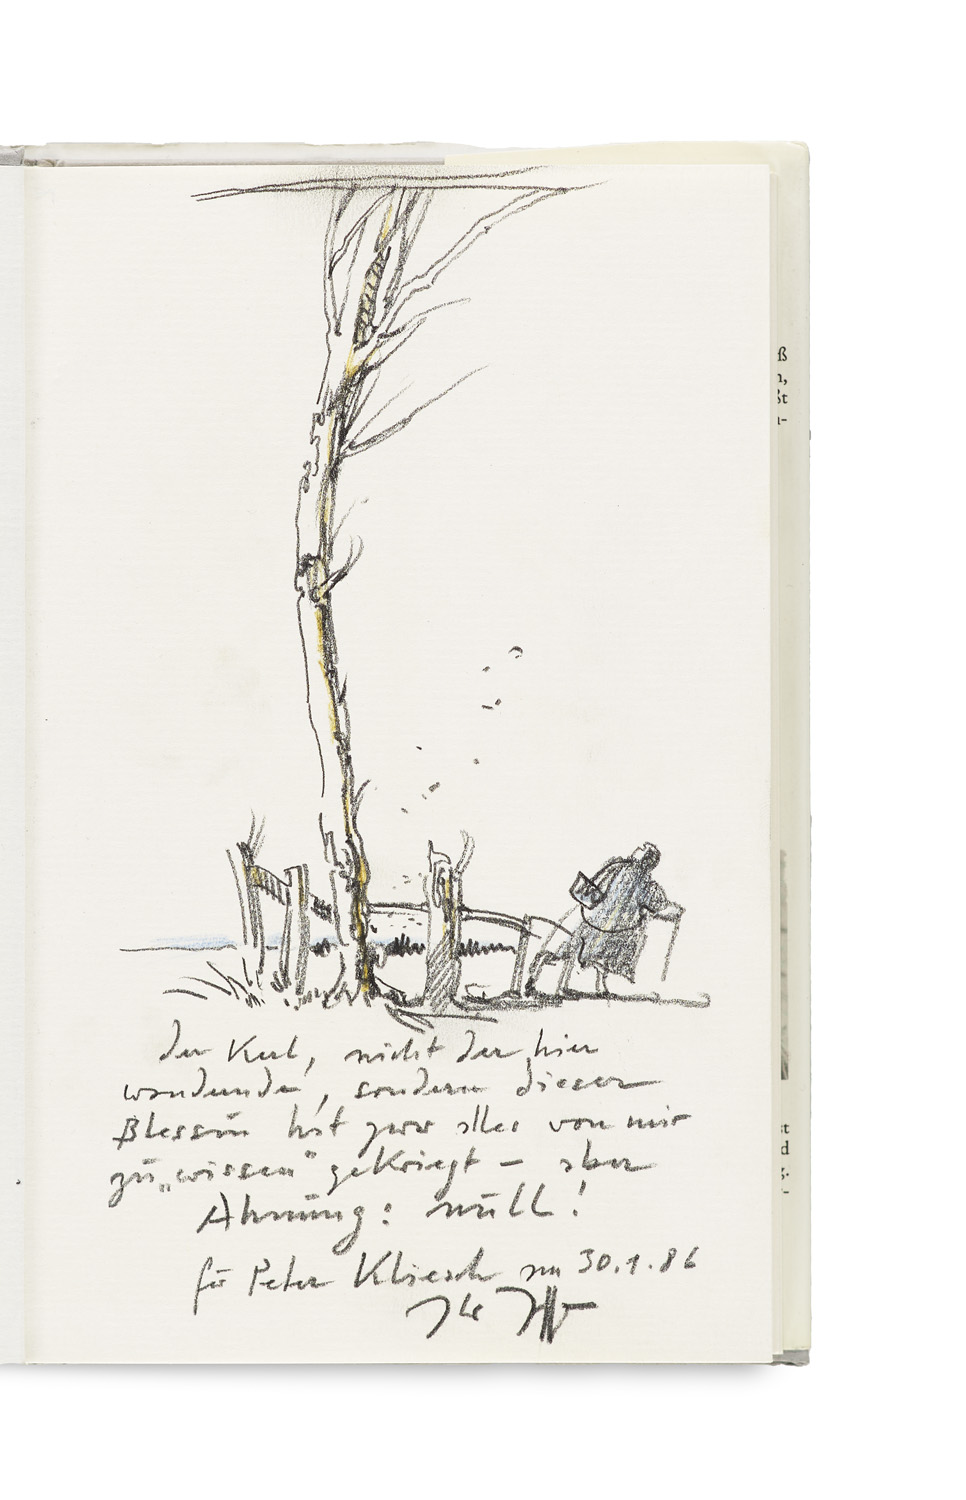 der Kerl, nicht der hier
wandernde, sondern dieser
Blessin hat zwar alles von mir
zu „wissen“ gekriegt – aber
Ahnung: null!
für Peter Kliesch am 30.1.86
ß
n,
ßt
n-
st
d
g.